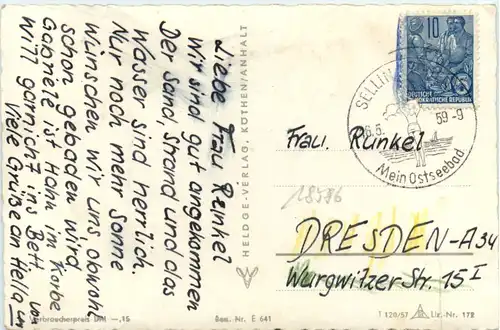 Liebe Frau Runkel
Wir sind gut angekommen
Der Sand, Strand und das
Wasser sind herrlich.
Nur noch mehr Sonne
wünschen wir uns, obwohl
schon gebaden wird
Gabriele ist Hahn im Korbe
Will garnicht ins Bett
Viele Grüße an Hella
Verbraucherpreis DM -,15
HELDGE-VERLAG, KÖTHEN/ANHALT
Best. Nr. E 641
10
DEUTSCHE
DEMOKRATISCHE REPUBLIK
SELLIN
59-9
Mein Ostseebad
Frau. Runkel
18586
DRESDEN-A34
Wurgwitzer Str. 15 I
I 120/57 Liz.-Nr. 172